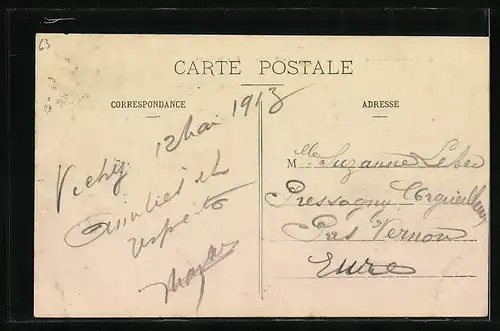 63
CARTE POSTALE
CORRESPONDANCE
ADRESSE
Vichy 12 Mai 1913
Amitiés et
respects
Mlle Suzanne
Pressagny l'Orgueilleux
Par Vernon
Eure